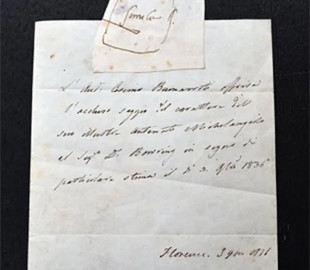 L'Aut. Cosimo Buonarroti offriva
l'accluso saggio del carattere del
suo illustre antenato Michelangelo
al Sigr. D. Bowring in segno di
particolare stima il dì 3. 9bre 1836
Florence. 3 9bre 1836